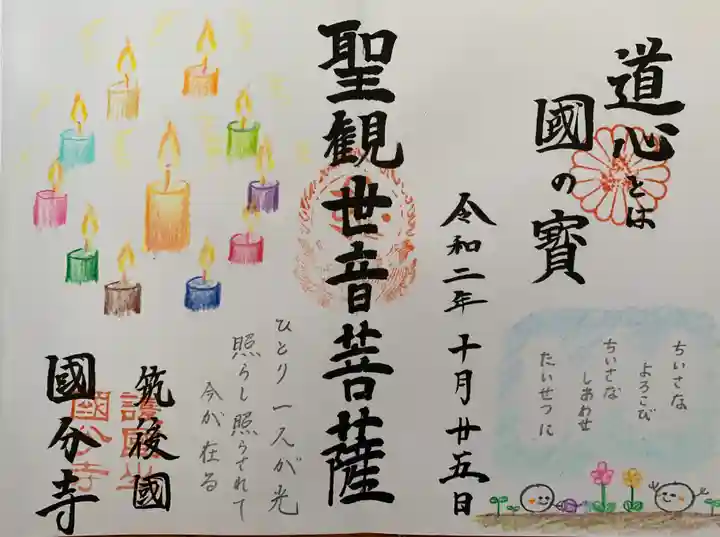 道心とは
國の寳
ちいさな
よろこび
ちいさな
しあわせ
たいせつに
令和二年十月廿五日
聖観世音菩薩
ひとり一人が光
照らし照らされて
今が在る
筑後國
國分寺